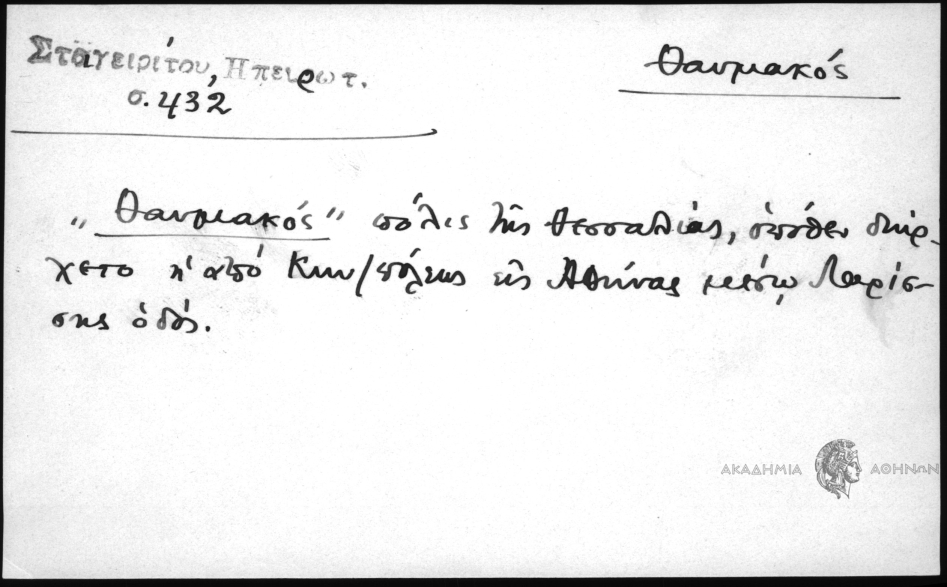 Σταγειρίτου, Ηπειρωτ.
σ. 432
Θαυμιακός
"Θαυμιακός" πόλις τῆς Θεσσαλίας, ὁπόθεν διήρ-
χετο ἡ ἀπό Κων/πόλεως εἰς Ἀθήνας μέσῳ Λαρίσ-
σης ὁδός.
ΑΚΑΔΗΜΙΑ ΑΘΗΝΩΝ